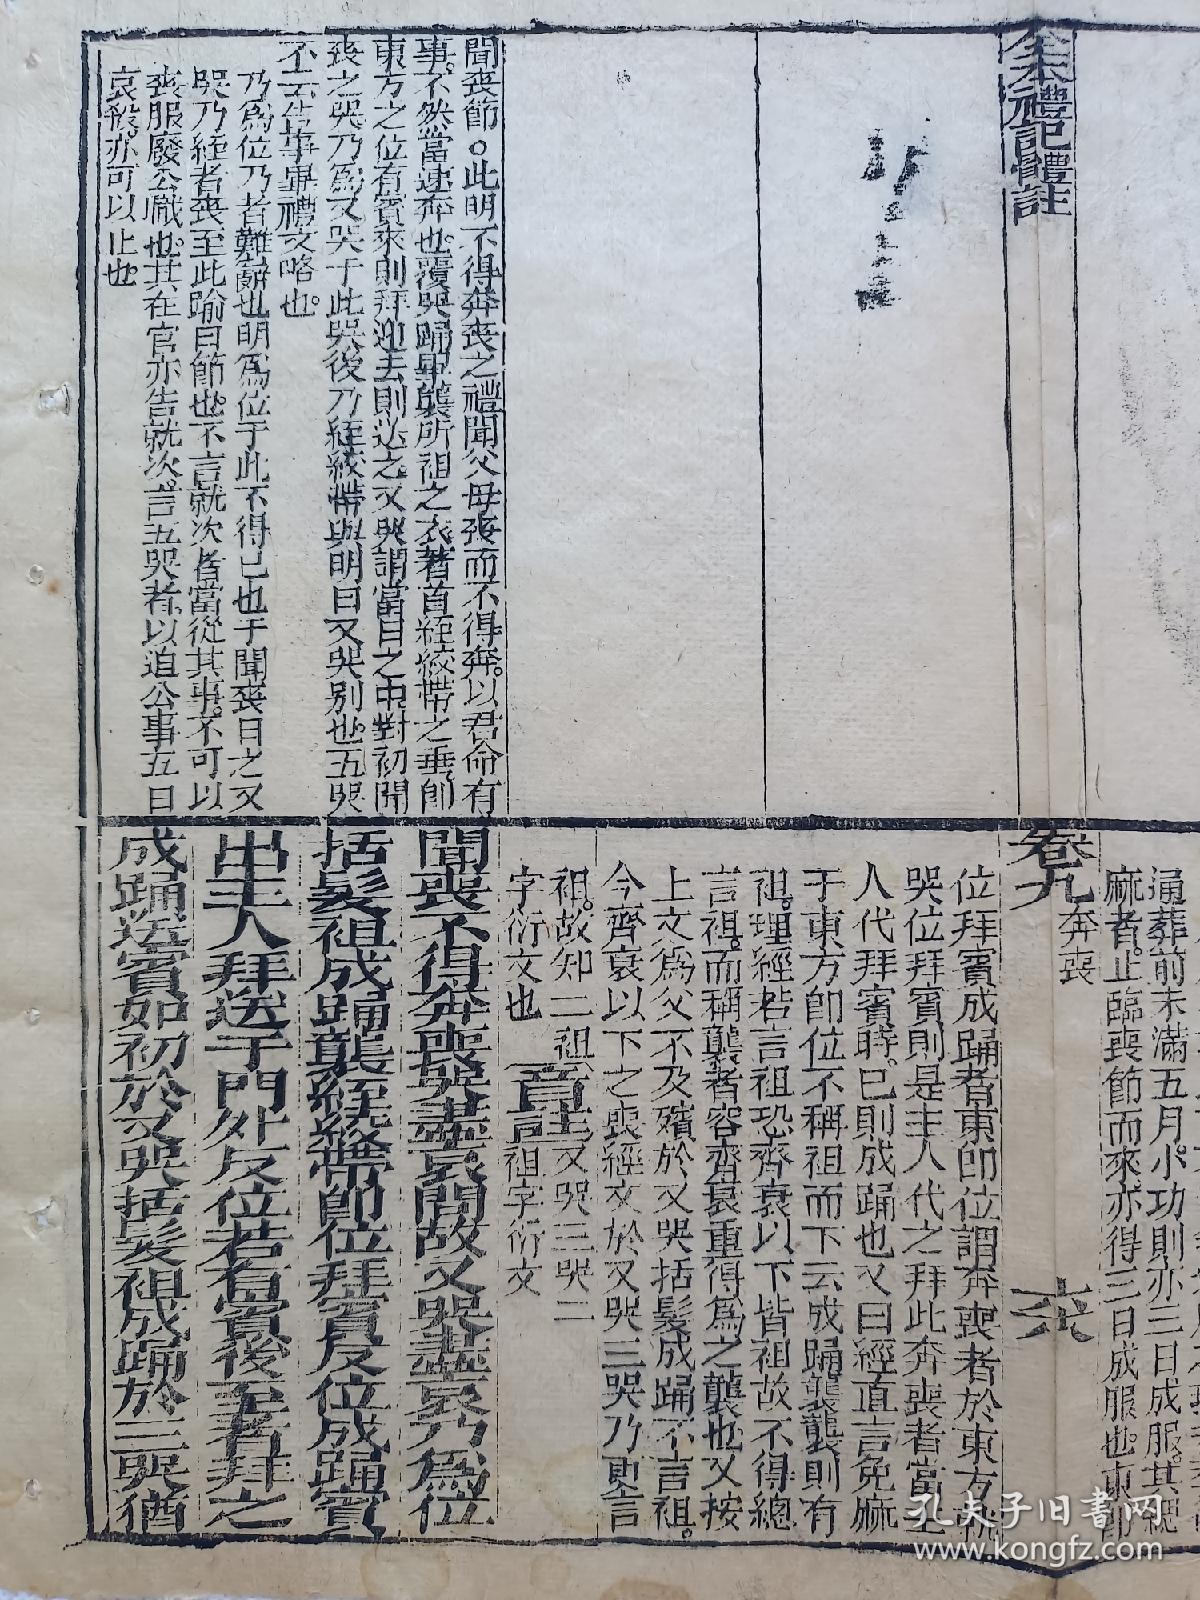 全本禮記體註
聞喪節○此明不得奔喪之禮聞父母喪而不得奔以君命有
事不然當速奔也覆哭踊畢襲所袒之衣著首絰絞帶之垂卽
東方之位有賓來則拜迎去則送之又哭謂當日之中對初聞
喪之哭乃爲又哭于此哭後乃絰絞帶與明日又哭別也五哭
不云告事畢禮文略也
乃爲位乃者難辭也明爲位于此不得已也于聞喪日之又
哭乃絰者喪至此踰日節也不言就次者當從其事不可以
喪服廢公職也其在官亦告就次言五哭者以迫公事五日
哀殺亦可以止也
通葬前未滿五月小功則亦三日成服其緦
麻者止臨喪節而來亦得三日成服也東卽
卷九 奔喪
六
位拜賓成踊者東卽位謂奔喪者於東方就
哭位拜賓則是主人代之拜此奔喪者當主
人代拜賓時已則成踊也又曰經直言免麻
于東方卽位不稱袒而下云成踊襲襲則有
袒理經若言袒恐齊衰以下皆袒故不得總
言袒而稱襲者容齊衰重得爲之襲也又按
上文爲父不及殯於又哭括髮成踊不言袒
今齊衰以下之喪經文於又哭三哭乃更言
袒故知二袒
字衍文也 音註 又哭三哭二
袒字衍文
聞喪不得奔喪哭盡哀問故又哭盡哀乃爲位
括髮袒成踊襲絰絞帶卽位拜賓反位成踊賓
出主人拜送于門外反位若有賓後至者拜之
成踊送賓如初於又哭括髮袒成踊於三哭猶
孔夫子旧书网
www.kongfz.com